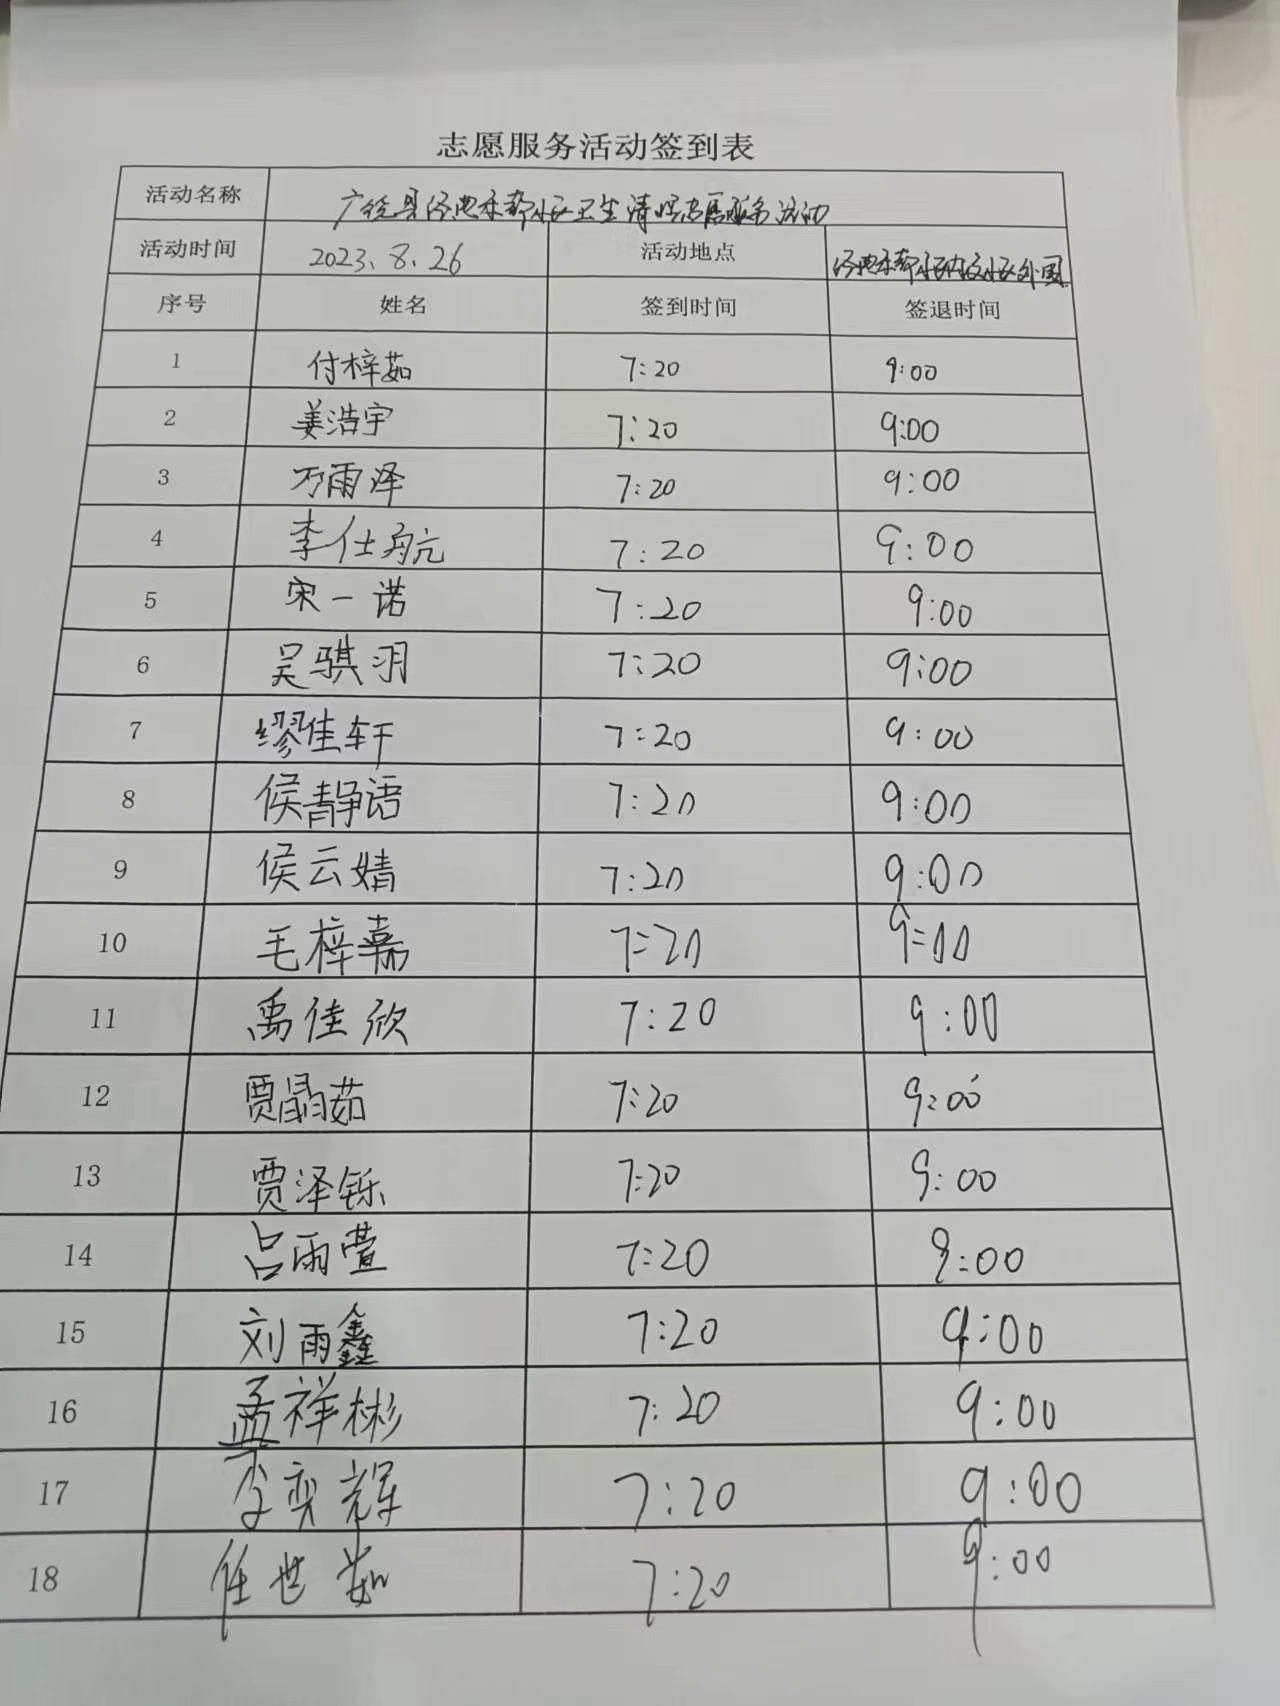 志愿服务活动签到表
活动名称 广饶县经典水都小区卫生清扫志愿服务活动
活动时间 2023.8.26 活动地点 经典水都小区内及小区外围
序号 姓名 签到时间 签退时间
1 付梓茹 7:20 9:00
2 姜浩宇 7:20 9:00
3 万雨泽 7:20 9:00
4 李仕航 7:20 9:00
5 宋一诺 7:20 9:00
6 吴骐羽 7:20 9:00
7 缪佳轩 7:20 9:00
8 侯静语 7:20 9:00
9 侯云婧 7:20 9:00
10 毛梓嘉 7:20 9:00
11 禹佳欣 7:20 9:00
12 贾晶茹 7:20 9:00
13 贾泽铄 7:20 9:00
14 吕雨萱 7:20 9:00
15 刘雨鑫 7:20 9:00
16 孟祥彬 7:20 9:00
17 李奕辉 7:20 9:00
18 任世茹 7:20 9:00